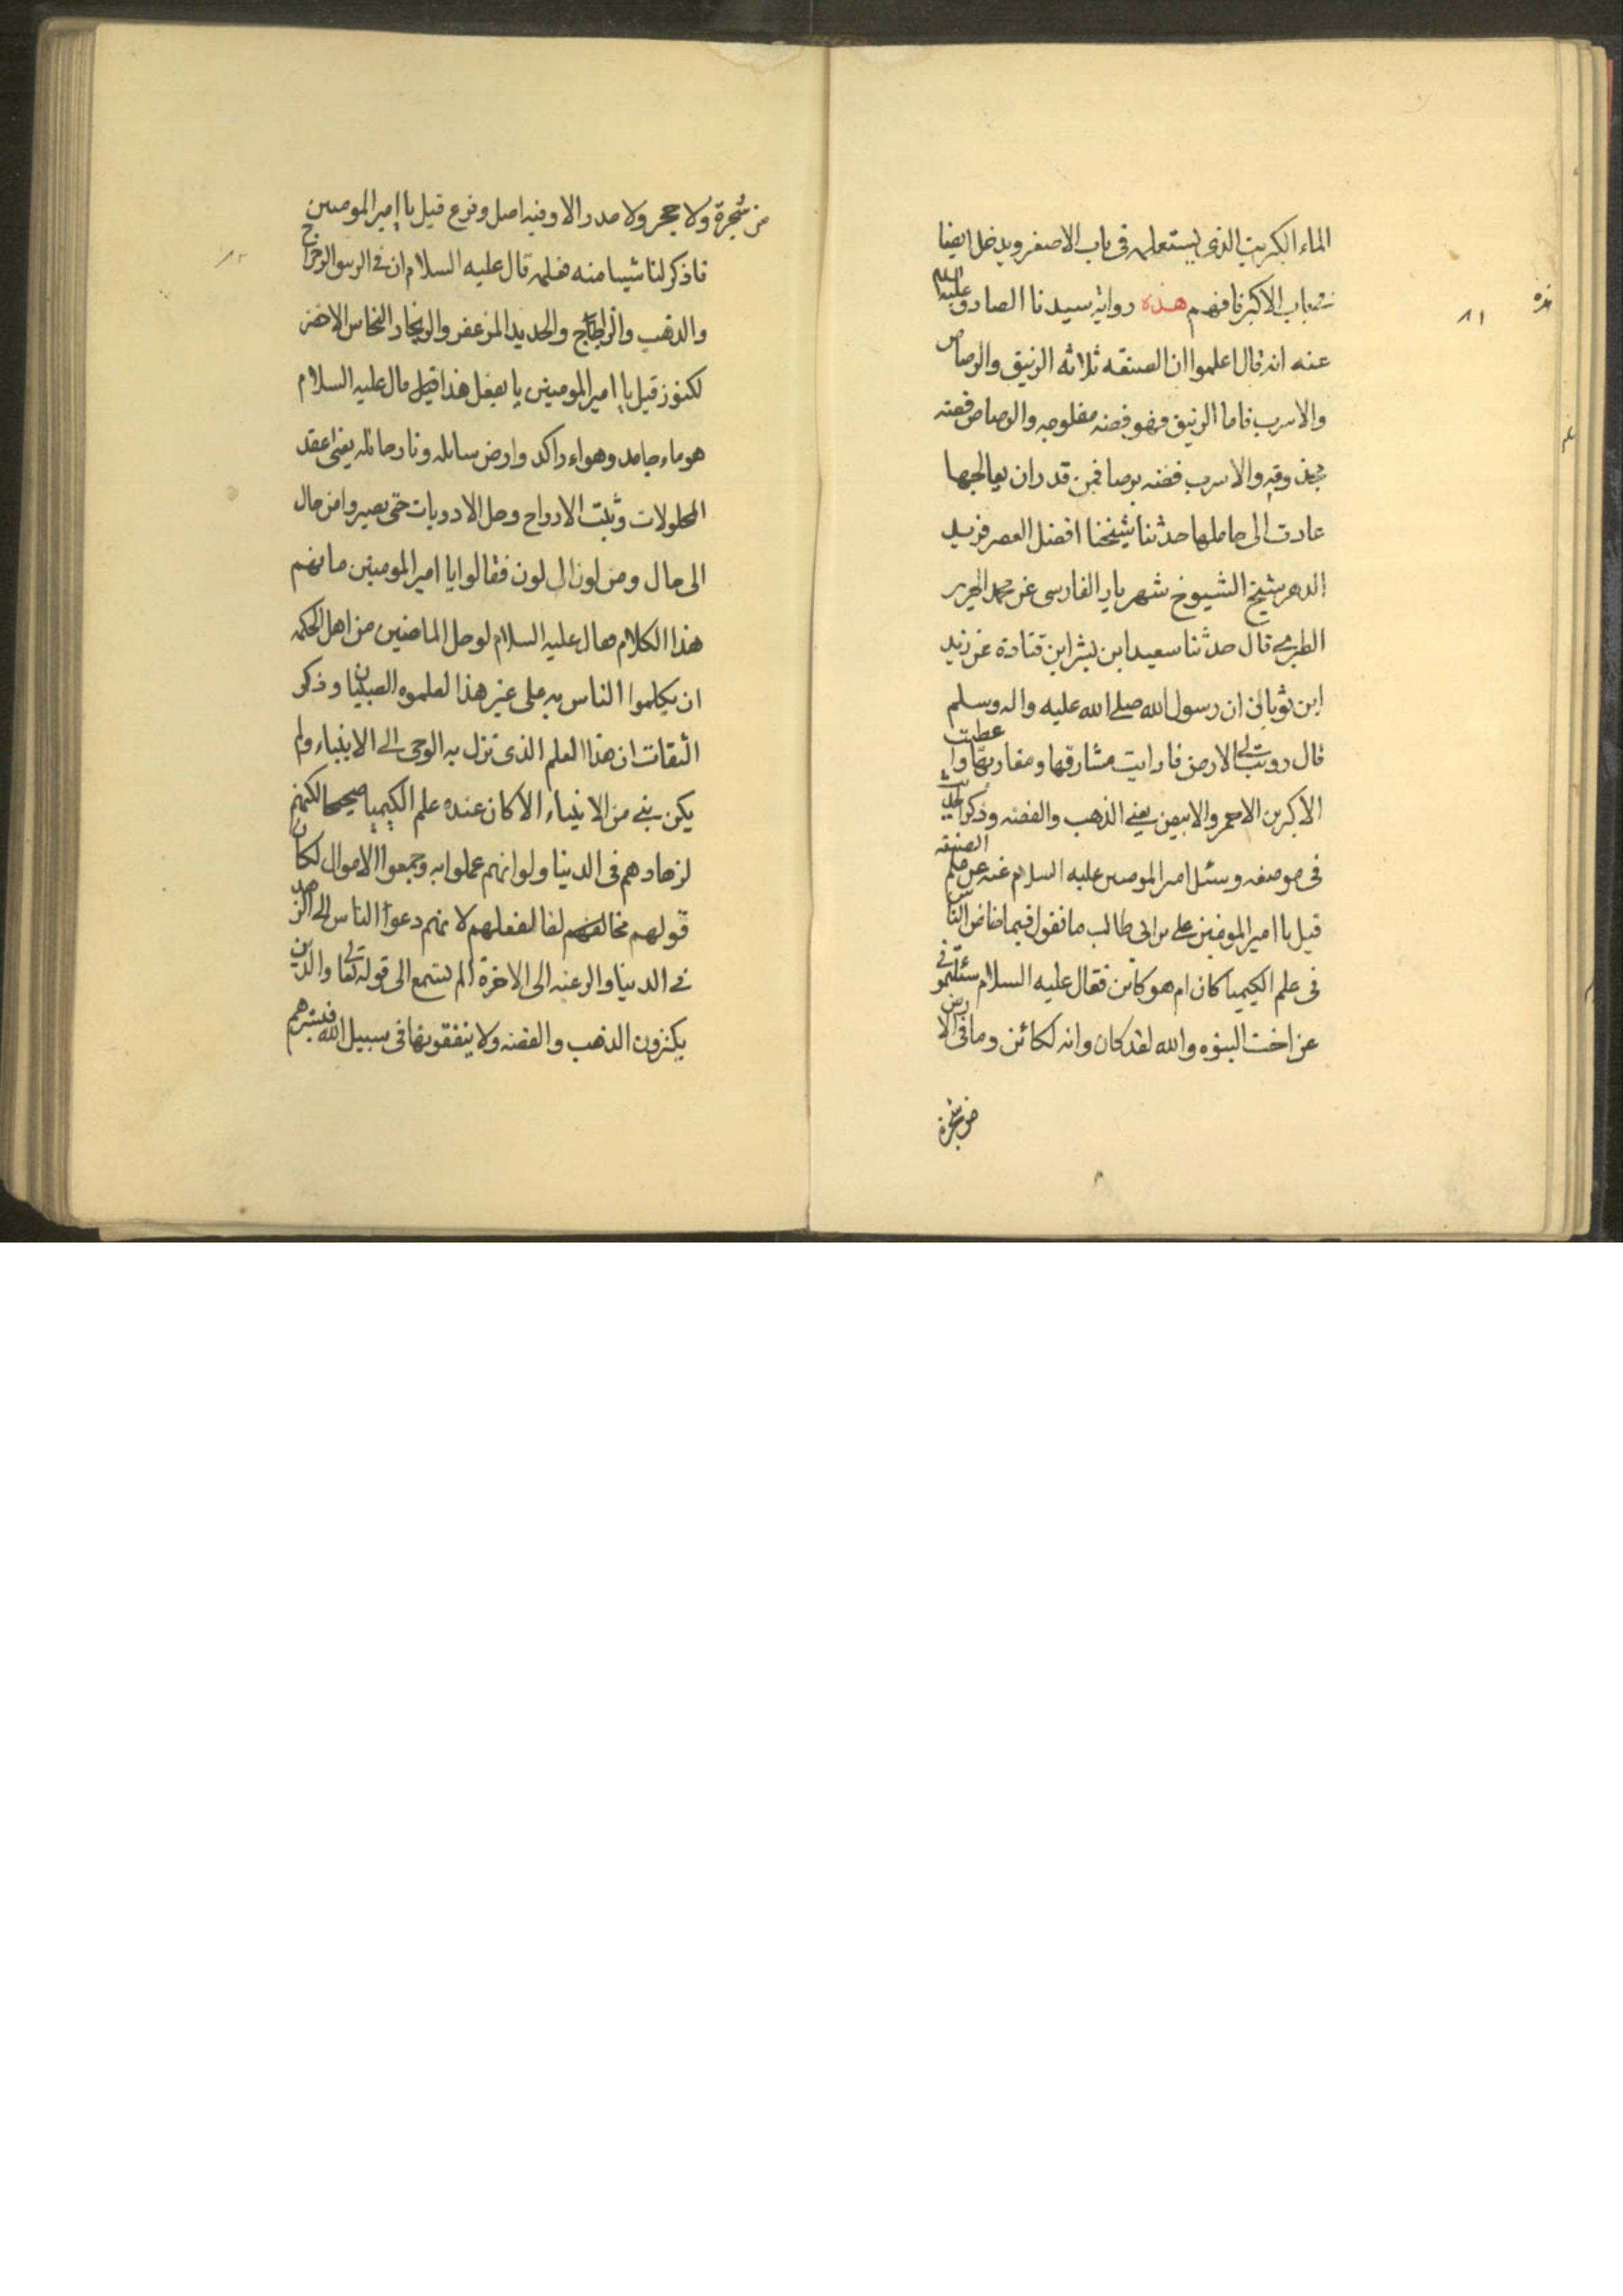 الماء الكبريت الذى يستعمله فى باب الاصغر ويدخل ايضا
فى باب الاكبر فافهم هذه رواية سيدنا الصادق عليه السلام
عنه انه قال اعلموا ان الصنعه ثلاثه الزيبق والرصاص
والاسرب فاما الزيبق فهو فضه مفلوجه والرصاص فضه
مجذوقه والاسرب فضه برصا فمن قدر ان يعالجها
عادت الى حاملها حدثنا شيخنا افضل العصر فريد
الدهر شيخ الشيوخ شهريار الفارسى عن محمد الجرير
الطبرى قال حدثنا سعيد ابن بشر ابن قتادة عن زيد
ابن ثوبان ان رسول الله صلى الله عليه واله وسلم
قال رويت لى الارض فارايت مشارقها ومغاربها واعطيت
الاكبرين الاحمر والابيض يعنى الذهب والفضه وذكر الحديث
فى موضعه وسئل امير المومنين عليه السلام عنه عن علم الصنعه
قيل يا امير المومنين على بن ابى طالب ما تقول فيما خاض الناس
فى علم الكيميا كان ام هو كاين فقال عليه السلام سئلتمونى
عن اخت النبوه والله لقد كان وانه لكائن وما فى الارض
من شجرة
٨١
من شجرة ولا حجر ولا مدر الا وفيه اصل وفرع قيل يا امير المومنين
فاذكر لنا شيئا منه فعلمه قال عليه السلام ان فى الزيبق الرجراج
والذهب والزاج والحديد المزعفر والزنجار النحاس الاخضر
لكنوز قيل يا امير المومنين يا بفعل هذا قيل قال عليه السلام
هو ماء جامد وهواء راكد وارض سائله ونار حائله يعنى اعقد
المحلولات وثبت الارواح وحل الادويات حتى يصيروا من حال
الى حال ومن لون الى لون فقالوا يا امير المومنين ما نفهم
هذا الكلام فقال عليه السلام لو حل الماضين من اهل الحكمه
ان يكلموا الناس به على غير هذا لعلموه الصبيان وذكر
الثقات ان هذا العلم الذى نزل به الوحى الى الانبياء ولم
يكن نبى من الانبياء الا كان عنده علم الكيميا صحيحا لكنهم
لزهادهم فى الدنيا ولو انهم عملوا به وجمعوا الاموال لكان
قولهم مخالف لفعلهم لانهم دعوا الناس الى الزهد
فى الدنيا والرغبه الى الاخرة الم تستمع الى قوله تعالى والذين
يكنزون الذهب والفضه ولا ينفقونها فى سبيل الله فبشرهم
٨٢